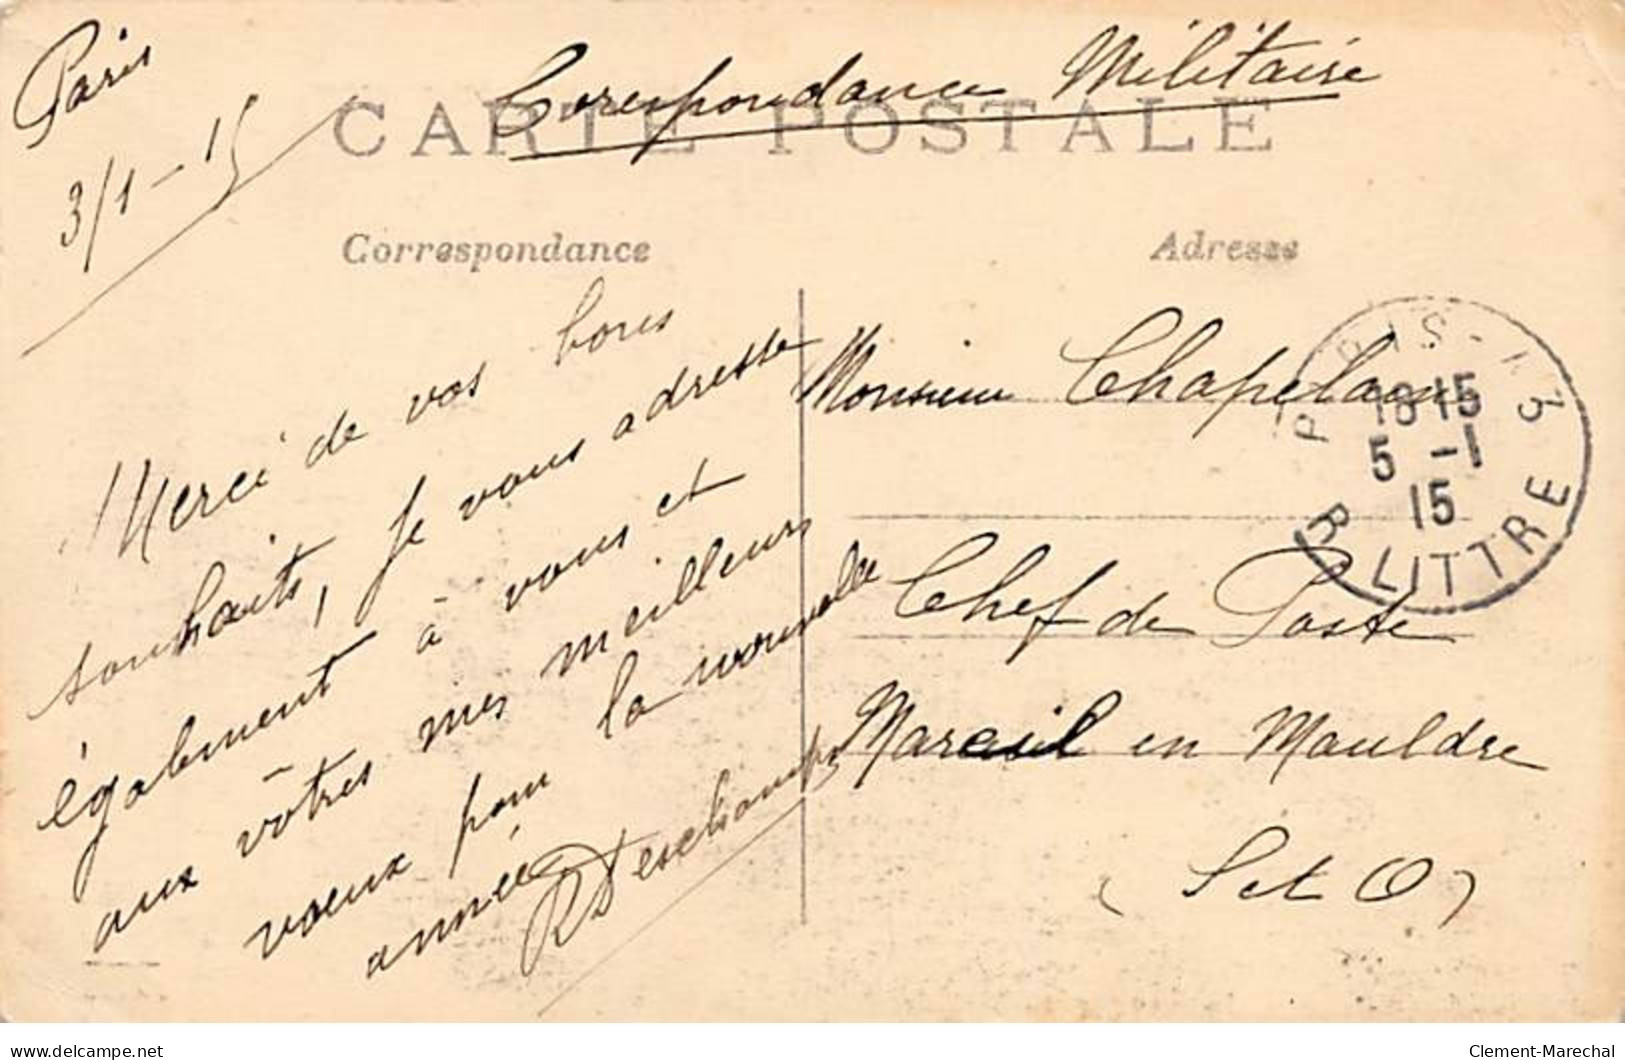 Paris
3/1-15
Correspondance Militaire
CARTE POSTALE
Correspondance
Adresse
Merci de vos bons
souhaits, je vous adresse
également à vous et
aux vôtres mes meilleurs
voeux pour la nouvelle
année
R Deschamps
Monsieur Chapelain
Chef de Poste
Mareuil en Mauldre
(S et O)
PARIS-113
18 15
5 -1
15
R LITTRE
delcampe.net
Clement-Marechal